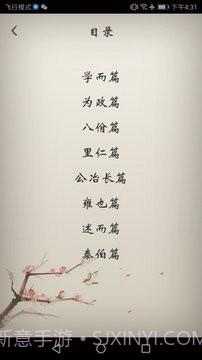 飞行模式 下午4:31
目录
学而篇
为政篇
八佾篇
里仁篇
公冶长篇
雍也篇
述而篇
泰伯篇
新意手游 SJXINYI.COM